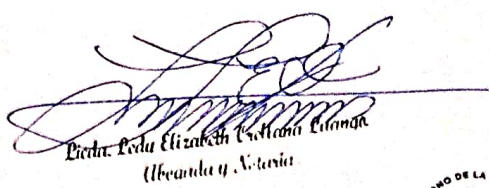 Licda. Ledy Elizabeth Orellana
Abogada y Notaria
NO DE LA